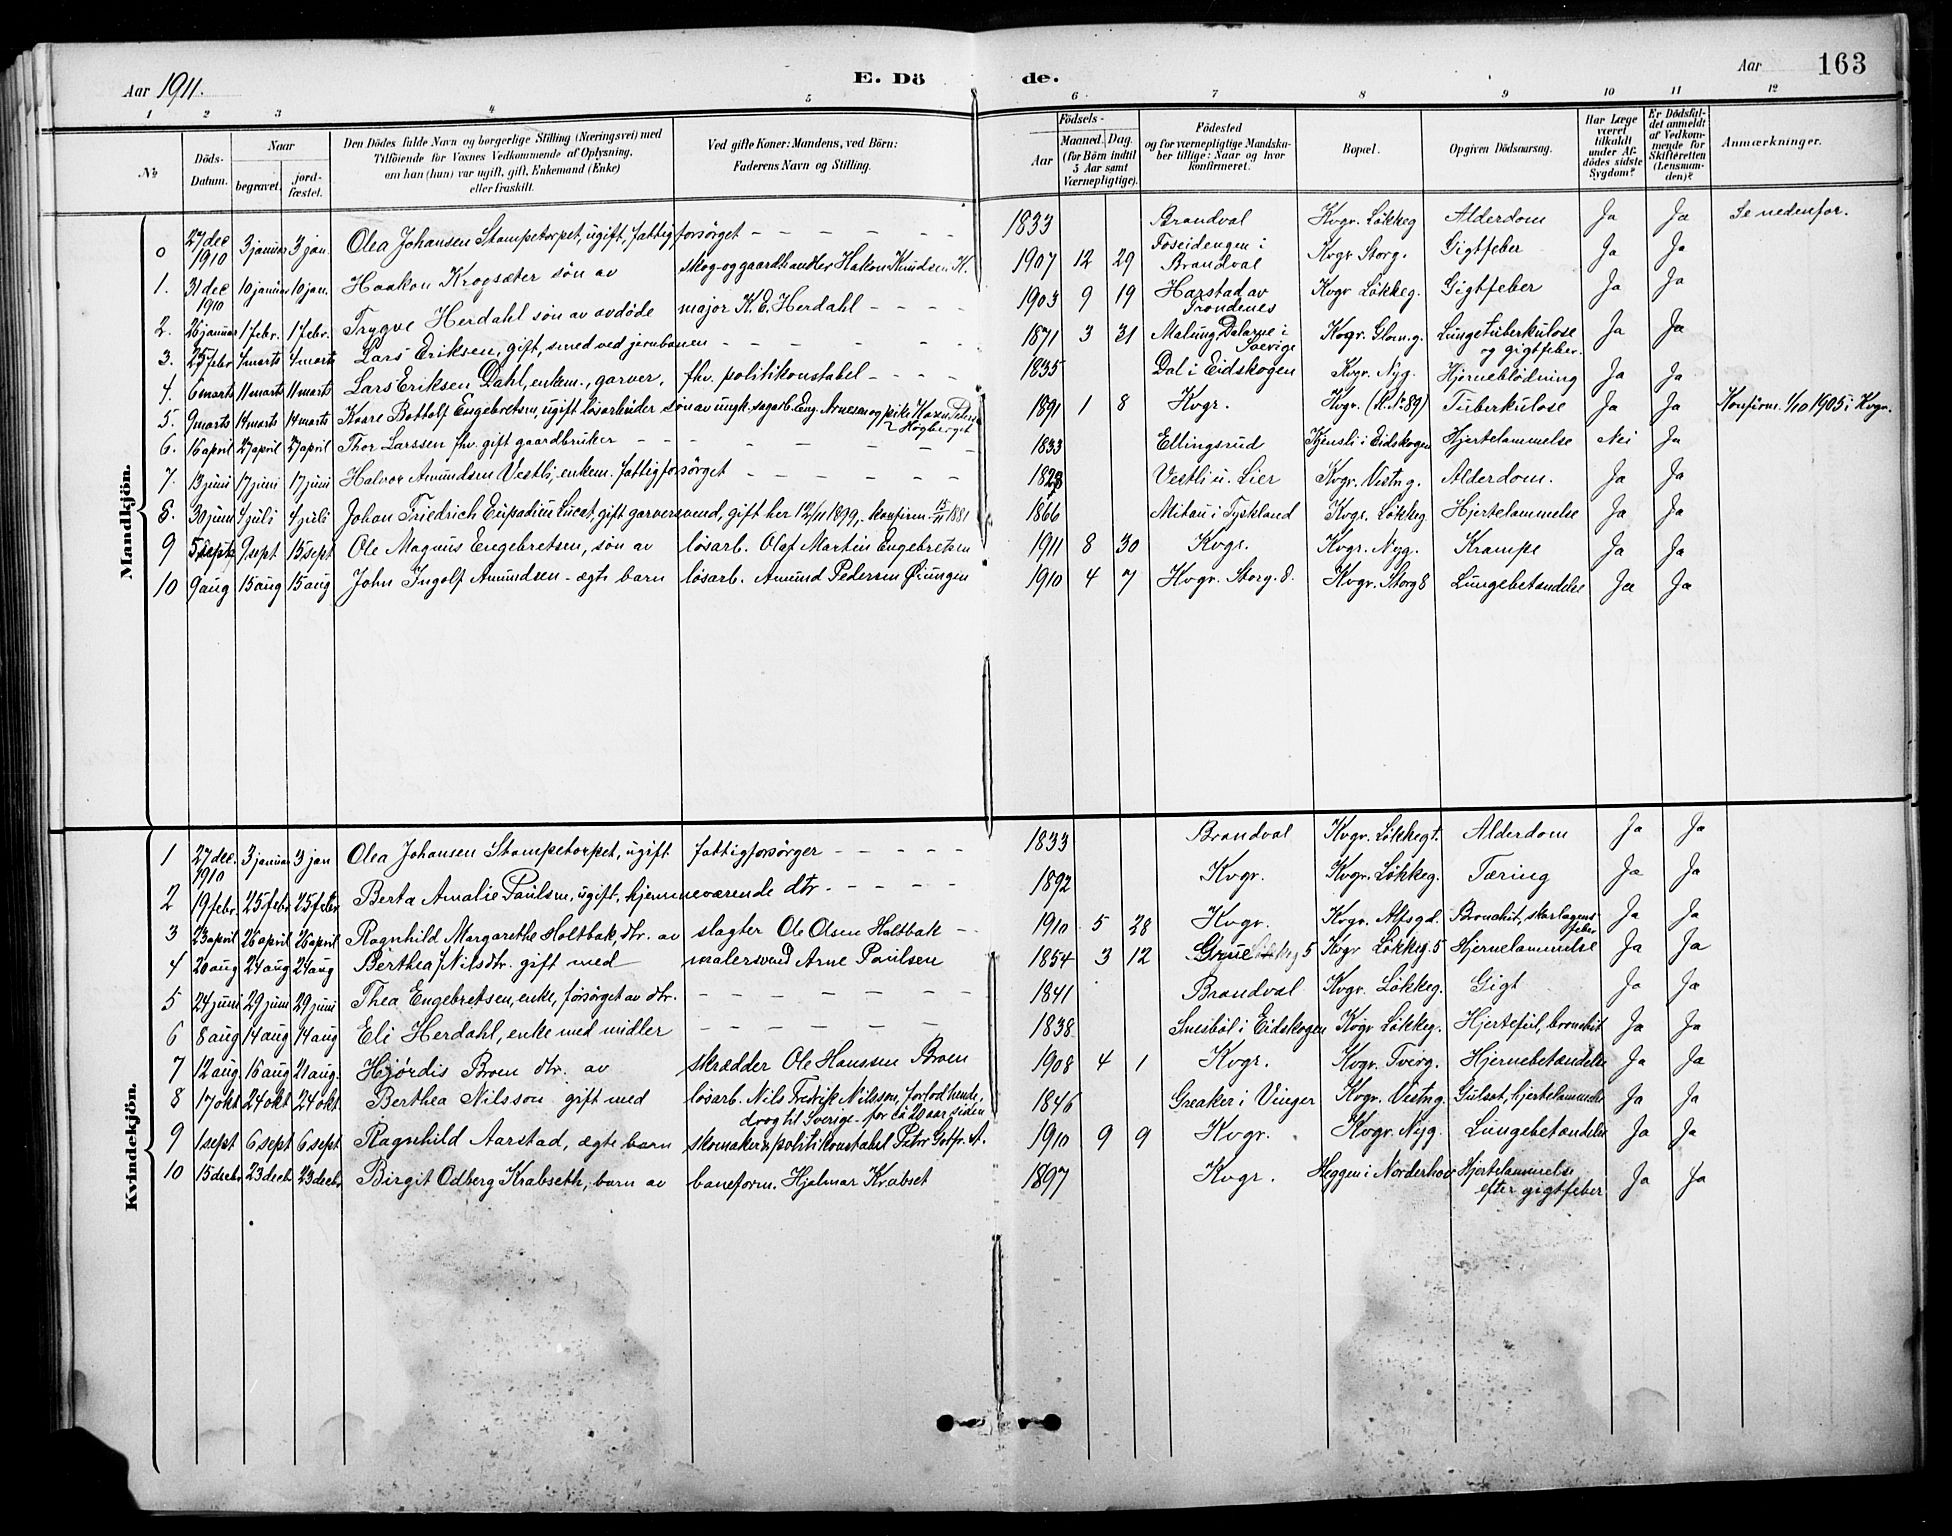 Aar 1911.
E. Dö de.
Aar 163
1 2 3 4 5 6 7 8 9 10 11 12
№ Döds-Datum. Naar begravet. jord-fæstet. Den Dödes fulde Navn og borgerlige Stilling (Næringsvei) med Tilföiende for Voxnes Vedkommende af Oplysning, om han (hun) var ugift, gift, Enkemand (Enke) eller fraskilt. Ved gifte Koner: Mandens, ved Börn: Faderens Navn og Stilling. Födsels- Aar Maaned. Dag. (for Börn indtil 5 Aar samt Værnepligtige). Födested og for værnepligtige Mandskaber tillige: Naar og hvor konfirmeret. Bopæl. Opgiven Dödsaarsag. Har Læge været tilkaldt under Afdödes sidste Sygdom? Er Dödsfaldet anmeldt af Vedkommende for Skifteretten (Lensmanden)? Anmærkninger.
Mandkjön.
0 27 dec 1910 3 januar 3 jan. Olea Johansen Stampetorpet, ugift, fattigforsørget 1833 Brandval Kvgr. Løkkeg Alderdom Ja Ja Se nedenfor.
1. 31 dec 1910 10 januar 10 jan. Haakon Krogsæter søn av skog- og gaardhandler Hakon Knudsen K. 1907 12 29 Føseidengen i Brandval Kvgr Storg. Gigtfeber Ja Ja
2. 26 januar 1 febr. 1 febr. Trygve Herdahl søn av avdøde major K. E. Herdahl 1903 9 19 Harstad av Trondenes Kvgr Løkkeg. Gigtfeber Ja Ja
3. 25 febr 4 marts 4 marts Lars Eriksen, gift, smed ved jernbanen 1871 3 21 Malung Dalarne i Sverige Kvgr. Glom.g. Lungetuberkulose og gigtfeber. Ja Ja
4. 6 marts 11 marts 11 marts Lars Eriksen Dahl, enkem., garver, fhv. politikonstabel 1835 Dal i Eidskogen Kvgr. Nyg. Hjerneblødning Ja Ja
5. 9 marts 14 marts 14 marts Kaare Bottolf Engebretsen, ugift løsarbeider søn av ungk. sagarb. Eng. Arnesen og pike Karen Peders. Høgberget 1891 1 8 Kvgr. Kvgr. (K. № 89) Tuberkulose Ja Ja Konfirm. 1/10 1905 i Kvgr.
6. 16 april 27 april 27 april Thor Larssen fhv. gift gaardbruker 1833 Ellingsrud Kjensli i Eidskogen Hjertelammelse Nei Ja
7. 13 juni 17 juni 17 juni Halvor Amundsen Vestli, enkem. fattigforsørget 1828 Vestli u. Lier Kvgr. Vestng. Alderdom. Ja Ja
8. 30 juni 4 juli 4 juli Johan Friedrich Lucat, gift garversvend, gift her 12/11 1899, konfirm 1881 1866 Mitau i Tyskland Kvgr. Løkkeg Hjertelammelse Ja Ja
9 5 sept 9 sept 15 sept Ole Magnus Engebretsen, søn av løsarb. Olaf Martin Engebretsen 1911 8 30 Kvgr. Kvgr. Nyg. Krampe Ja Ja
10 9 aug 15 aug 15 aug John Ingolf Amundsen - ægte barn løsarb. Amund Pedersen Øiungen 1910 4 7 Kvgr. Storg. 8. Kvgr. Storg 8 Lungebetændelse Ja Ja
Kvindekjön.
1 27 dec. 1910 3 januar 3 jan Olea Johansen Stampetorpet, ugift fattigforsørger 1833 Brandval Kvgr. Løkkegt. Alderdom Ja Ja
2 19 febr. 25 febr 25 febr Berta Amalie Paulsen, ugift, hjemmeværende dtr. 1892 Kvgr. Kvgr. Løkkeg. Tæring Ja Ja
3 23 april 26 april 26 april Ragnhild Margarethe Holtbak, dtr. av slagter Ole Olsen Holtbak 1910 5 28 Kvgr. Kvgr. Alfsgd. Bronchit, skarlagensfeber Ja Ja
4 20 aug 24 aug 24 aug Berthea Nilsdtr. gift med malersvend Arne Paulsen 1854 3 12 Grue Kvgr Løkkeg. 5 Hjernelammelse Ja Ja
5 24 juni 29 juni 29 juni Thea Engebretsen, enke, forsørget av dtr. 1841 Brandval Kvgr. Løkkeg. Gigt Ja Ja
6 8 aug 14 aug 14 aug Eli Herdahl, enke med midler 1838 Snesbøl i Eidskogen Kvgr Løkkeg. Hjertefeil, bronchit Ja Ja
7 12 aug. 16 aug 21 aug. Hjørdis Broen dtr. av skrædder Ole Hanssen Broen 1908 4 1 Kvgr. Kvgr. Tverg. Hjernebetændelse Ja Ja
8 17 okt 24 okt 24 okt. Berthea Nilsson gift med løsarb. Nils Fredrik Nilsson, forlod hende, drog til Sverige for ca 20 aar siden 1846 Greaker i Vinger Kvgr. Vestng. Gulsot, hjertelammelse Ja Ja
9 1 sept 6 sept 6 sept Ragnhild Aarstad, ægte barn skomaker & politikonstabel Petr. Gotfr. A. 1910 9 9 Kvgr. Kvgr. Nyg. Lungebetændelse Ja Ja
10 15 decbr 23 decbr 23 decbr. Birgit Odberg Krabseth, barn av baneform. Hjalmar Krabset 1897 Kvgr. Heggen i Norderhov Hjertelammelse efter gigtfeber Ja Ja